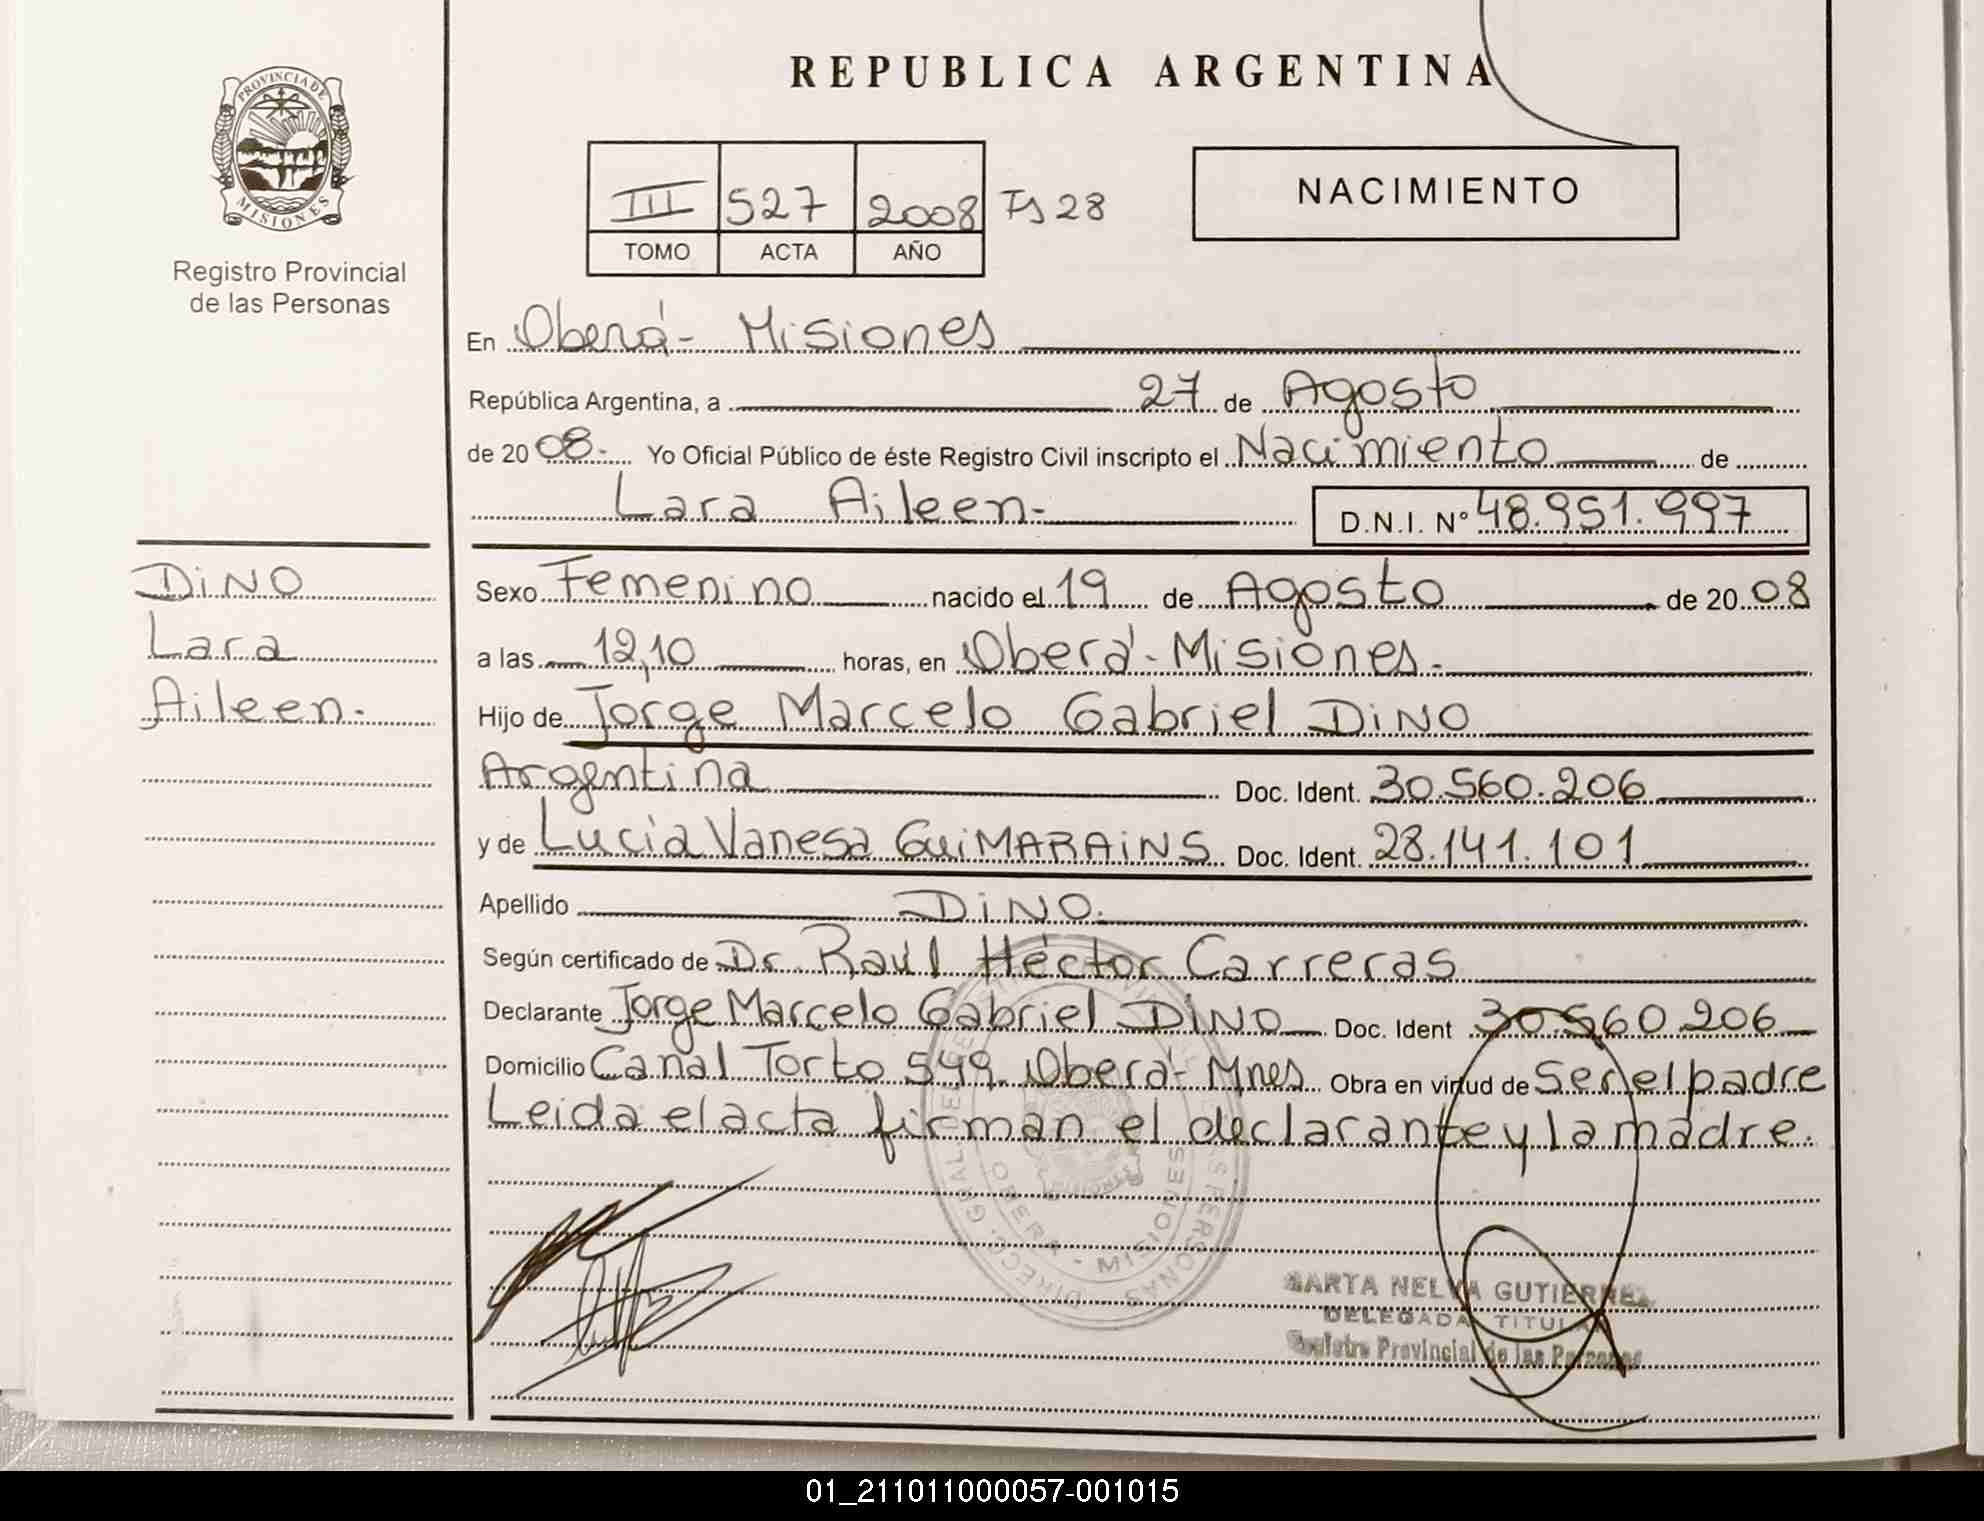 REPUBLICA ARGENTINA
PROVINCIA DE
MISIONES
Registro Provincial
de las Personas
III 527 2008 Fs 28
TOMO ACTA AÑO
NACIMIENTO
En Oberá- Misiones
República Argentina, a 27 de Agosto
de 20 08.- Yo Oficial Público de éste Registro Civil inscripto el Nacimiento de
Lara Aileen.- D.N.I. N° 48.951.997
DiNO
Lara
Aileen.-
Sexo Femenino nacido el 19 de Agosto de 20 08
a las 12,10 horas, en Oberá- Misiones.-
Hijo de Jorge Marcelo Gabriel DiNO
Argentina Doc. Ident. 30.560.206
y de Lucia Vanesa GuiMARAiNS Doc. Ident. 28.141.101
Apellido DiNO.
Según certificado de Dr. Raúl Héctor Carreras
Declarante Jorge Marcelo Gabriel DiNO Doc. Ident 30.560.206
Domicilio Canal Torto 549. Oberá- Mnes Obra en virtud de Ser el padre
Leida el acta firman el declarante y la madre.
OBERA - MISIONES
MARTA NELVA GUTIERREZ
DELEGADA TITULAR
Registro Provincial de las Personas
01_211011000057-001015